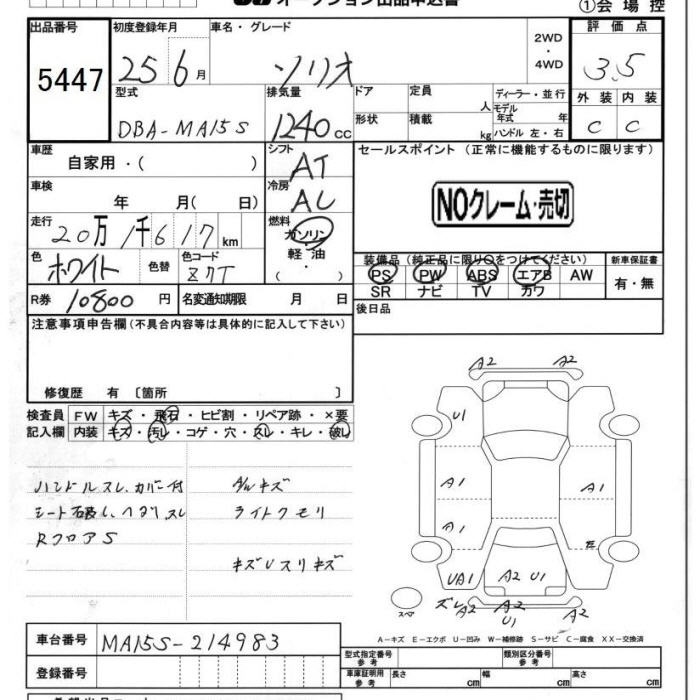 オークション出品申込書
①会場控
出品番号
5447
初度登録年月
25 6月
車名・グレード
ソリオ
2WD
・
4WD
評価点
3.5
型式
DBA-MA15S
排気量
1240cc
ドア
定員
人
ディーラー・並行
形状
積載
kg
モデル年式
年
ハンドル 左・右
外装
内装
C
C
車歴
自家用・( )
シフト
AT
セールスポイント (正常に機能するものに限ります)
NOクレーム・売切
車検
年 月( 日)
冷房
AC
走行
20万1千617km
燃料
ガソリン
軽油
( ・ )
色
ホワイト
色替
色コード
Z7T
装備品 (純正品に限り○をつけてください)
PS PW ABS エアB AW
SR ナビ TV カワ
新車保証書
有・無
R券 10800 円
名変通知期限 月 日
後日品
注意事項申告欄(不具合内容等は具体的に記入して下さい)
修復歴 有 〔箇所 〕
検査員
記入欄
FW
キズ・飛石・ヒビ割・リペア跡・×要
内装
キズ・汚レ・コゲ・穴・スレ・キレ・破レ
ハンドルスレ、カバー付
シート破レ、ヘタリ、スレ
RフロアS
ダルキズ
ライトクモリ
キズUスリキズ
A2
A2
U1
A1
A1
A1
UA1
A2 U1
ズレA2
A2
U1
A2
スペア
A-キズ E-エクボ U-凹み W-補修跡 S-サビ C-腐食 XX-交換済
車台番号
MA15S-214983
登録番号
型式指定番号
参考
類別区分番号
参考
車庫証明用
参考
長さ
cm
幅
cm
高さ
cm